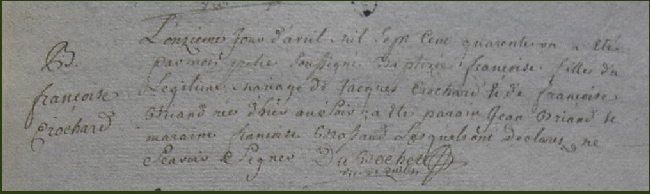 B.
françoise
Crochard
L'onzieme jour d'avril mil sept cent quarente un a eté
par moi prêtre soussigné baptizée françoise filles du
Legitime mariage de Jacques Crochard & de françoise
Briand née d'hier au soir a eté parain Jean Briand &
maraine françoise lesquels ont declarés ne
scavoir signer Du Rocher